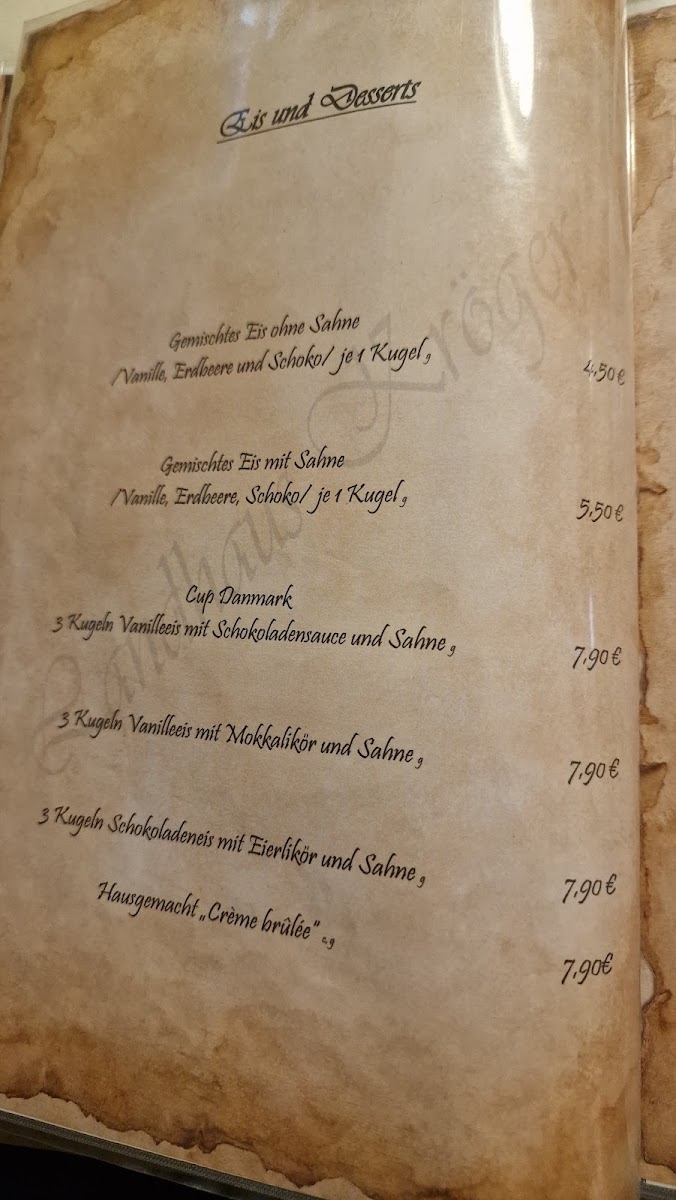 Eis und Desserts
Gemischtes Eis ohne Sahne
/Vanille, Erdbeere und Schoko/ je 1 Kugel g
4,50 €
Gemischtes Eis mit Sahne
/Vanille, Erdbeere, Schoko/ je 1 Kugel g
5,50 €
Cup Danmark
3 Kugeln Vanilleeis mit Schokoladensauce und Sahne g
7,90 €
3 Kugeln Vanilleeis mit Mokkalikör und Sahne g
7,90 €
3 Kugeln Schokoladeneis mit Eierlikör und Sahne g
7,90 €
Hausgemacht „Crème brûlée“ c, g
7,90€
Landhaus Kröger